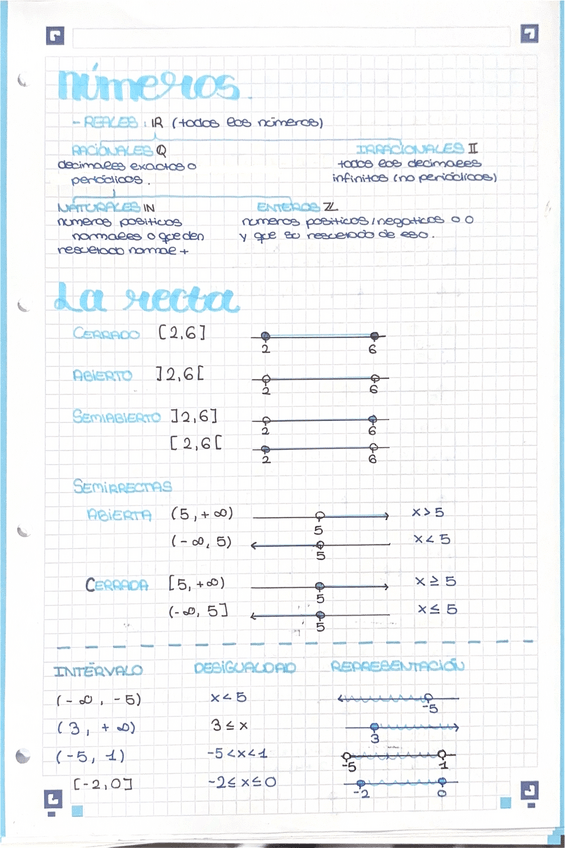 números.
- REALES : IR (todos los números)
RACIONALES Q
IRRACIONALES II
decimales exactos o
periódicos.
todos los decimales
infinitos (no periódicos)
NATURALES IN
ENTEROS Z
números positivos
normales o que den
resultado normal +
números positivos/negativos o 0
y que su resultado de eso.
La recta
CERRADO [2,6]
2 6
ABIERTO ]2,6[
2 6
SEMIABIERTO ]2,6]
2 6
[2,6[
2 6
SEMIRRECTAS
ABIERTA (5,+∞) 5 x>5
(-∞,5) 5 x<5
CERRADA [5,+∞) 5 x≥5
(-∞,5] 5 x≤5
INTÉRVALO DESIGUALDAD REPRESENTACIÓN
(-∞,-5) x<5 -5
(3,+∞) 3≤x 3
(-5,1) -5<x<1 -5 1
[-2,0] -2≤x≤0 -2 0